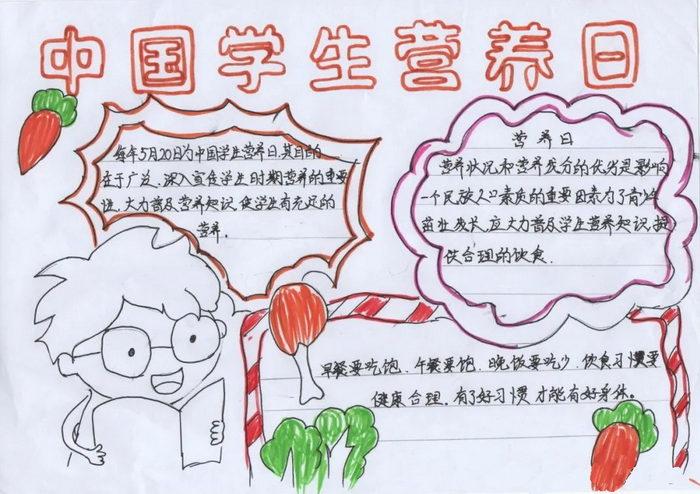 中国学生营养日
每年5月20日为中国学生营养日,其目的
在于广泛、深入宣传学生时期营养的重要
性,大力普及营养知识,使学生有充足的
营养。
营养日
营养状况和营养成分的优劣是影响
一个民族人口素质的重要因素为了青少年
茁壮成长,应大力普及学生营养知识,提
供合理的饮食.
早餐要吃饱,午餐要饱,晚饭要吃少,饮食习惯要
健康合理,有了好习惯,才能有好身体。